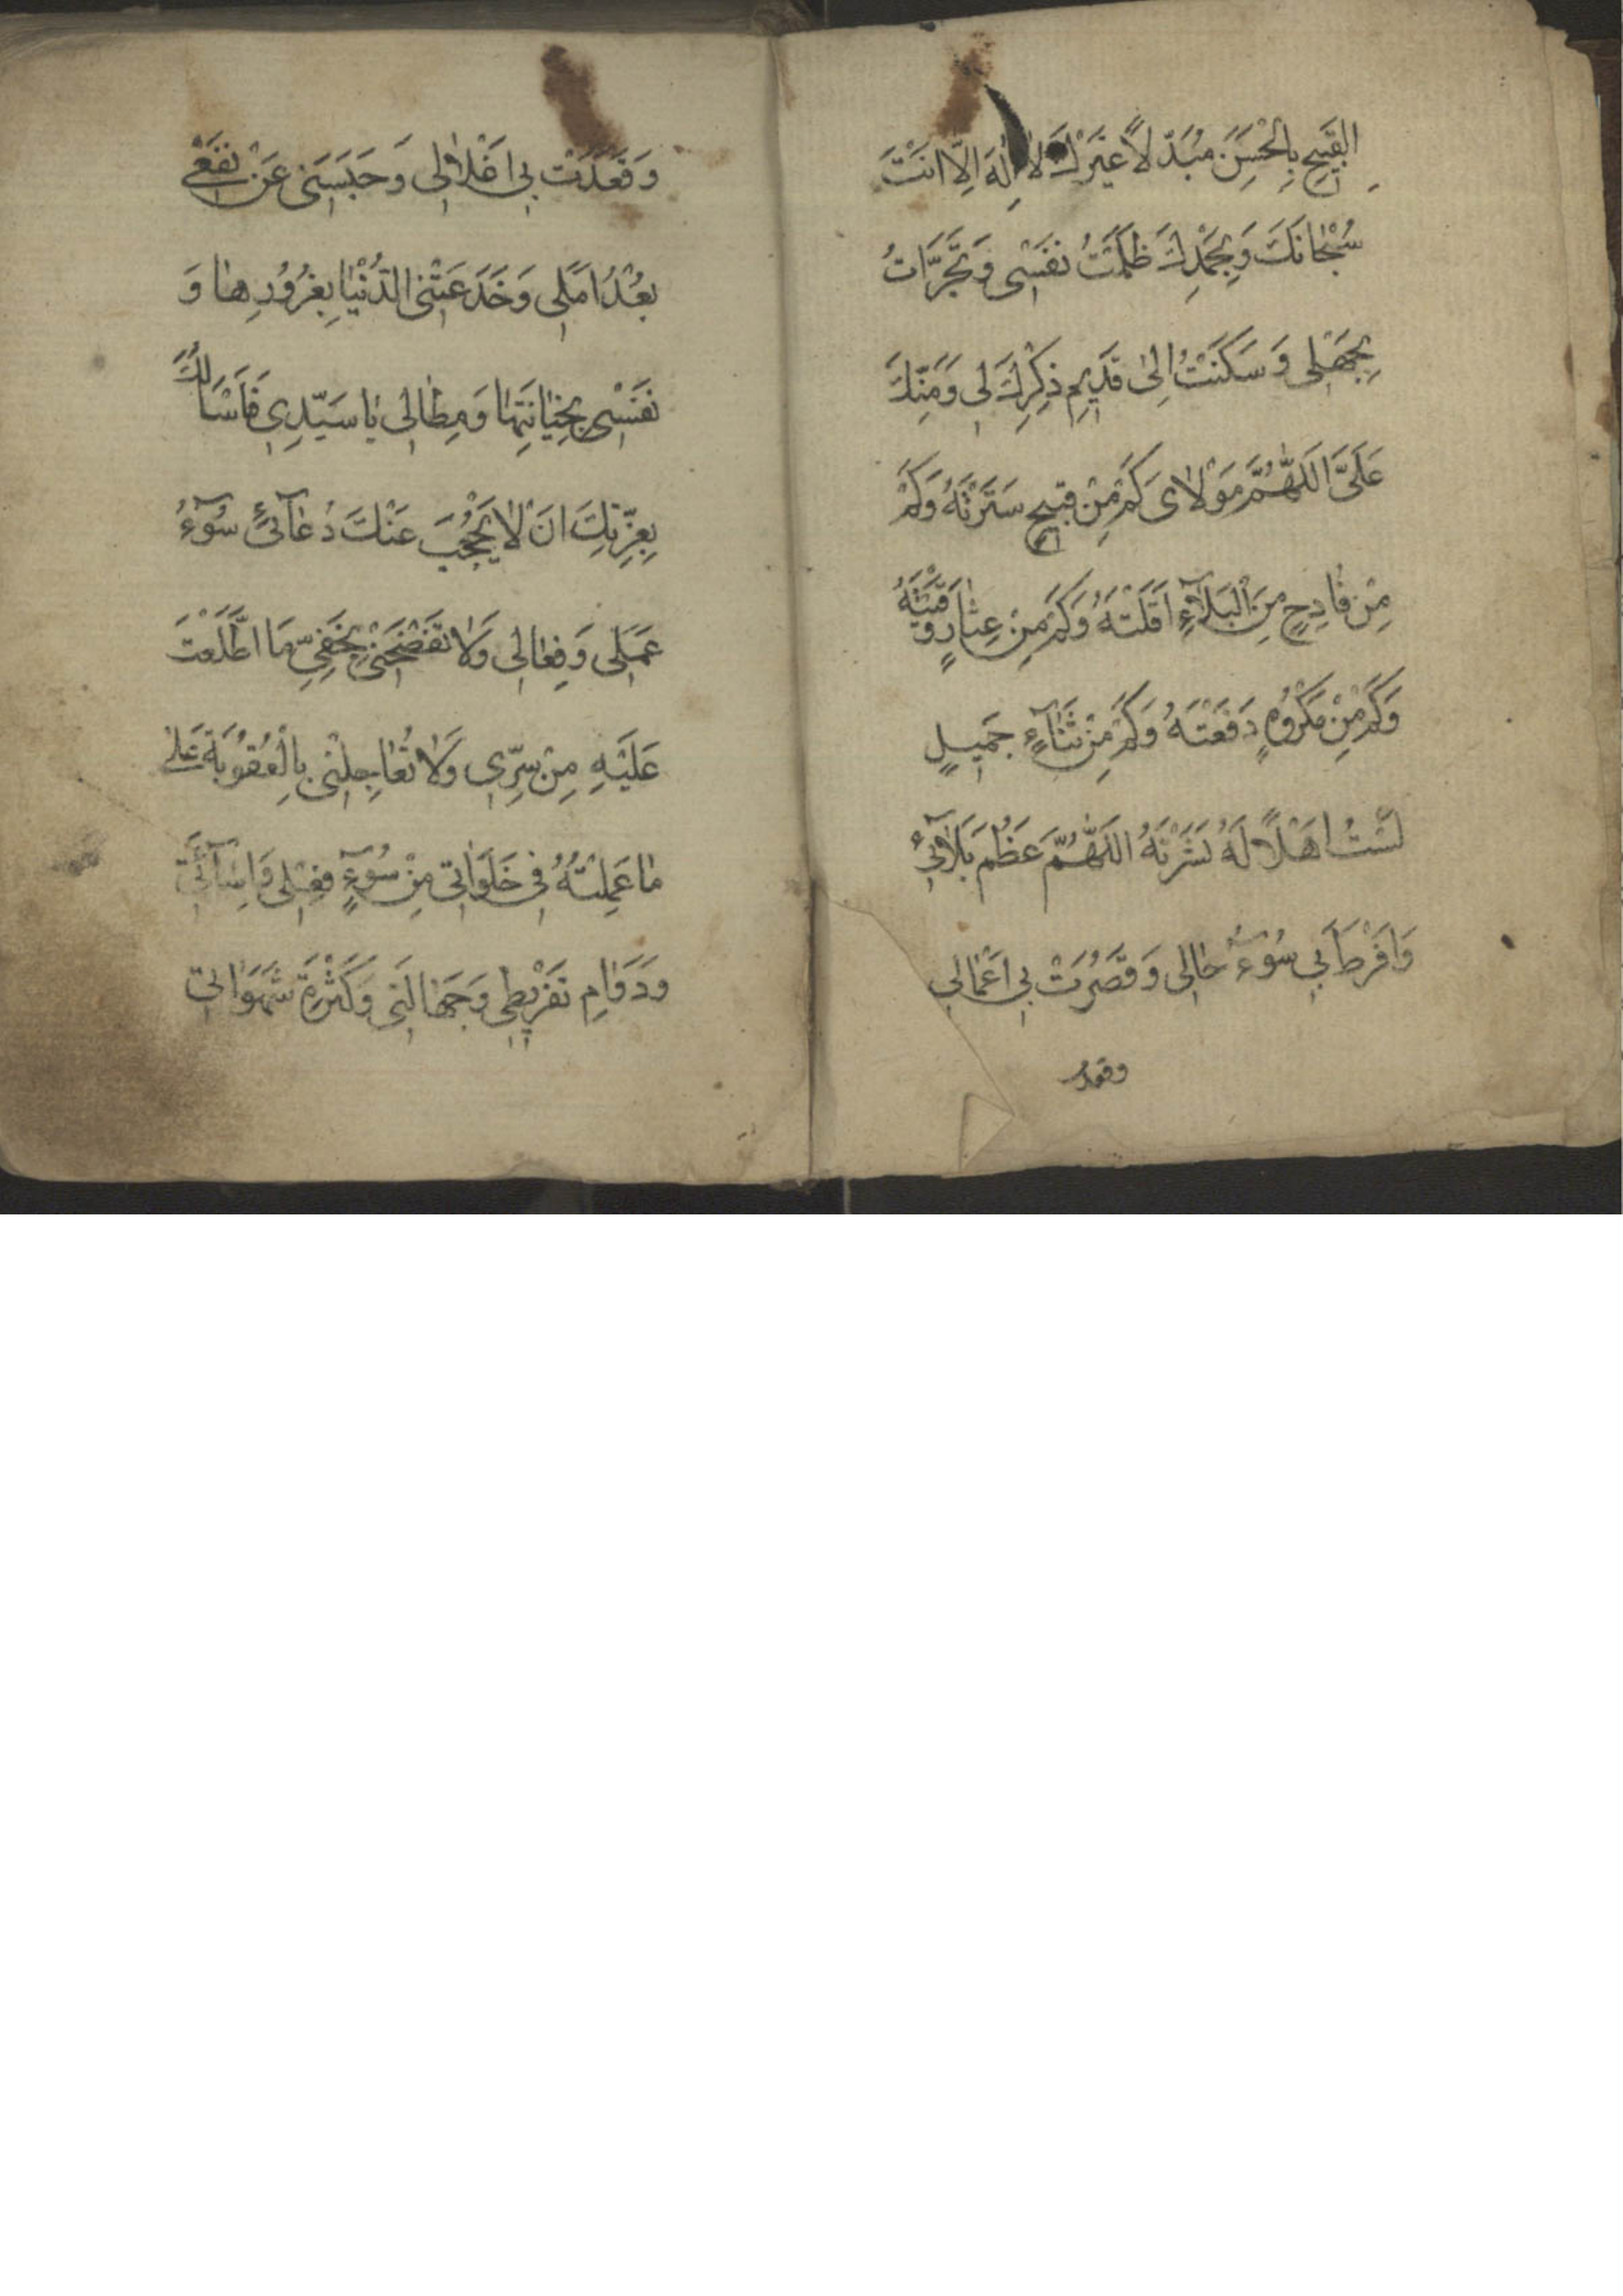 القَبِيحِ بِالْحَسَنِ مُبَدِّلاً غَيْرَكَ لا اِلٰهَ اِلّا اَنْتَ
سُبْحانَكَ وَبِحَمْدِكَ ظَلَمْتُ نَفْسِى وَتَجَرَّاْتُ
بِجَهْلى وَسَكَنْتُ اِلىٰ قَدِيمِ ذِكْرِكَ لى وَمَنِّكَ
عَلَىَّ اَللّٰهُمَّ مَوْلاىَ كَمْ مِنْ قَبِيحٍ سَتَرْتَهُ وَكَمْ
مِنْ فادِحٍ مِنَ الْبَلآءِ اَقَلْتَهُ وَكَمْ مِنْ عِثارٍ وَقَيْتَهُ
وَكَمْ مِنْ مَكْرُوهٍ دَفَعْتَهُ وَكَمْ مِنْ ثَنآءٍ جَمِيلٍ
لَسْتُ اَهْلاً لَهُ نَشَرْتَهُ اَللّٰهُمَّ عَظُمَ بَلآئى
وَاَفْرَطَ بى سُوٓءُ حالى وَقَصُرَتْ بى اَعْمالى
وقعدت
وَقَعَدَتْ بى اَغْلالى وَحَبَسَنى عَنْ نَفْعى
بُعْدُ اَمَلى وَخَدَعَتْنِى الدُّنْيا بِغُرُورِها وَ
نَفْسِى بِخِيانَتِها وَمِطالى يا سَيِّدِى فَاَسْاَلُكَ
بِعِزَّتِكَ اَنْ لا يَحْجُبَ عَنْكَ دُعآئى سُوٓءُ
عَمَلى وَفِعالى وَلا تَفْضَحْنى بِخَفِىِّ مَا اطَّلَعْتَ
عَلَيْهِ مِنْ سِرّى وَلا تُعاجِلْنى بِالْعُقُوبَةِ عَلىٰ
ما عَمِلْتُهُ فى خَلَواتى مِنْ سُوٓءِ فِعْلى وَاِسآئَتى
وَدَوامِ تَفْرِيطى وَجَهالَتى وَكَثْرَةِ شَهَواتى